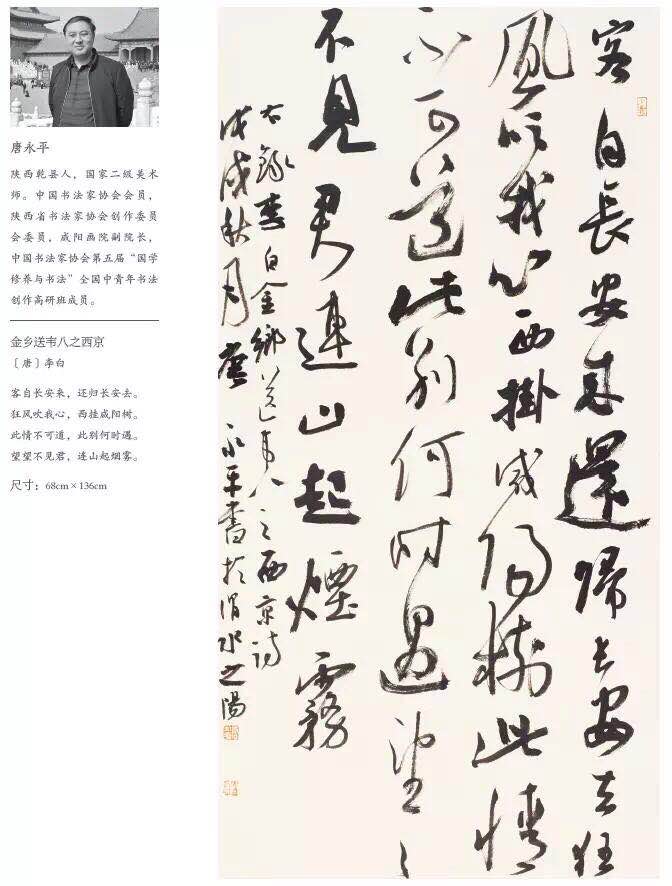 唐永平
陕西乾县人，国家二级美术
师。中国书法家协会会员，
陕西省书法家协会创作委员
会委员，咸阳画院副院长，
中国书法家协会第五届“国学
修养与书法”全国中青年书法
创作高研班成员。
金乡送韦八之西京
［唐］李白
客自长安来，还归长安去。
狂风吹我心，西挂咸阳树。
此情不可道，此别何时遇。
望望不见君，连山起烟雾。
尺寸：68cm×136cm
客自長安来還歸长安去狂
風吹我心西掛咸陽樹此情
不可道此别何时遇望〻
不見君連山起煙霧
右録李白金鄉送韦八之西京诗
戊戌秋月唐永平書於渭水之陽